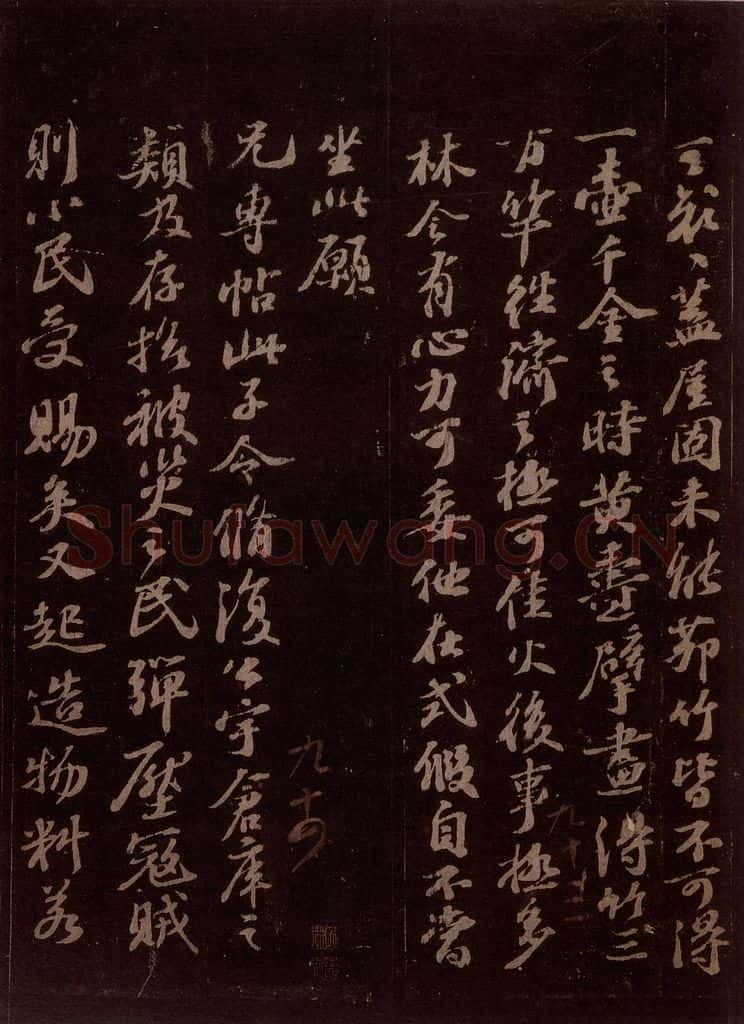 三哀哀蓋屋固未能茆竹皆不可得
一壺千金之時黃燾擘畫得竹三
万竿往濟之極可佳火後事極多
林令有心力可委他在式假自不當
坐此願
兄專帖此子令脩復公宇倉庫之
類及存撫被災之民彈壓寇賊
則小民受賜矣又起造物料若
九十三
九十四
Shufawang.CN